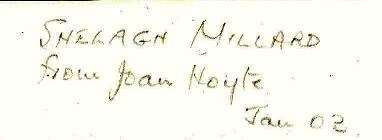 SHELAGH MILLARD
from Joan Hoyte
Jan 02